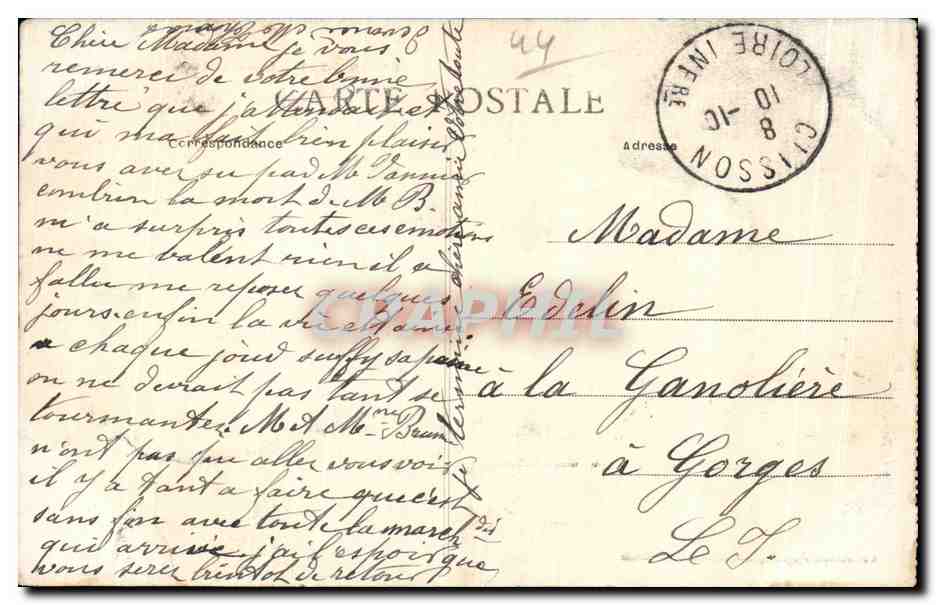 CARTE POSTALE
Correspondance
Adresse
44
CLISSON
8 -10
10
LOIRE INFRE
Chère Madame je vous
remerci de votre bonne
lettre que j'attendais et
qui ma fait bien plaisir
vous avez su par M
combien la mort de M B.
m'a surpris toutes ces emotions
ne me valent rien il a
fallu me reposer quelques
jours enfin la vie est ainsi
a chaque jour suffy sa peine
on ne devrait pas tant se
tourmanter M et Mme Brun
n'ont pas pu aller vous voir
il y a tant a faire que c'est
sans fin avec toute la marchdis
qui arrive j'ai l'espoir que
vous serez bientot de retour
je termine chère amie
Madame
Edelin
à la Ganolière
à Gorges
L. I.
CPAPHIL